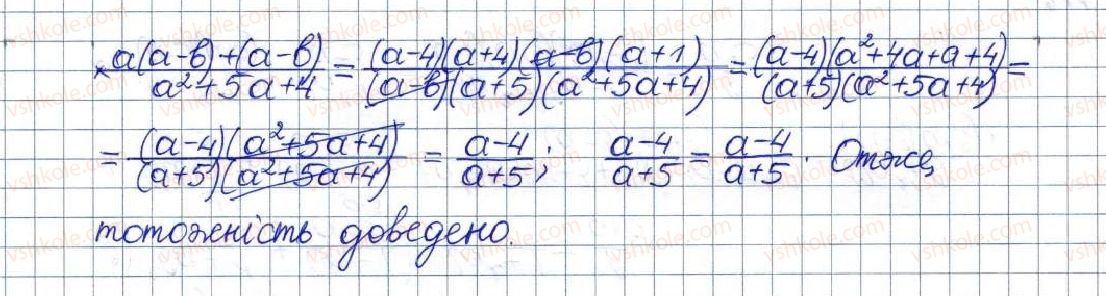 × a(a-b)+(a-b) / a²+5a+4 = (a-4)(a+4)(a-b)(a+1) / (a-b)(a+5)(a²+5a+4) = (a-4)(a²+4a+a+4) / (a+5)(a²+5a+4) =
= (a-4)(a²+5a+4) / (a+5)(a²+5a+4) = a-4 / a+5; a-4 / a+5 = a-4 / a+5. Отже,
тотожність доведено.